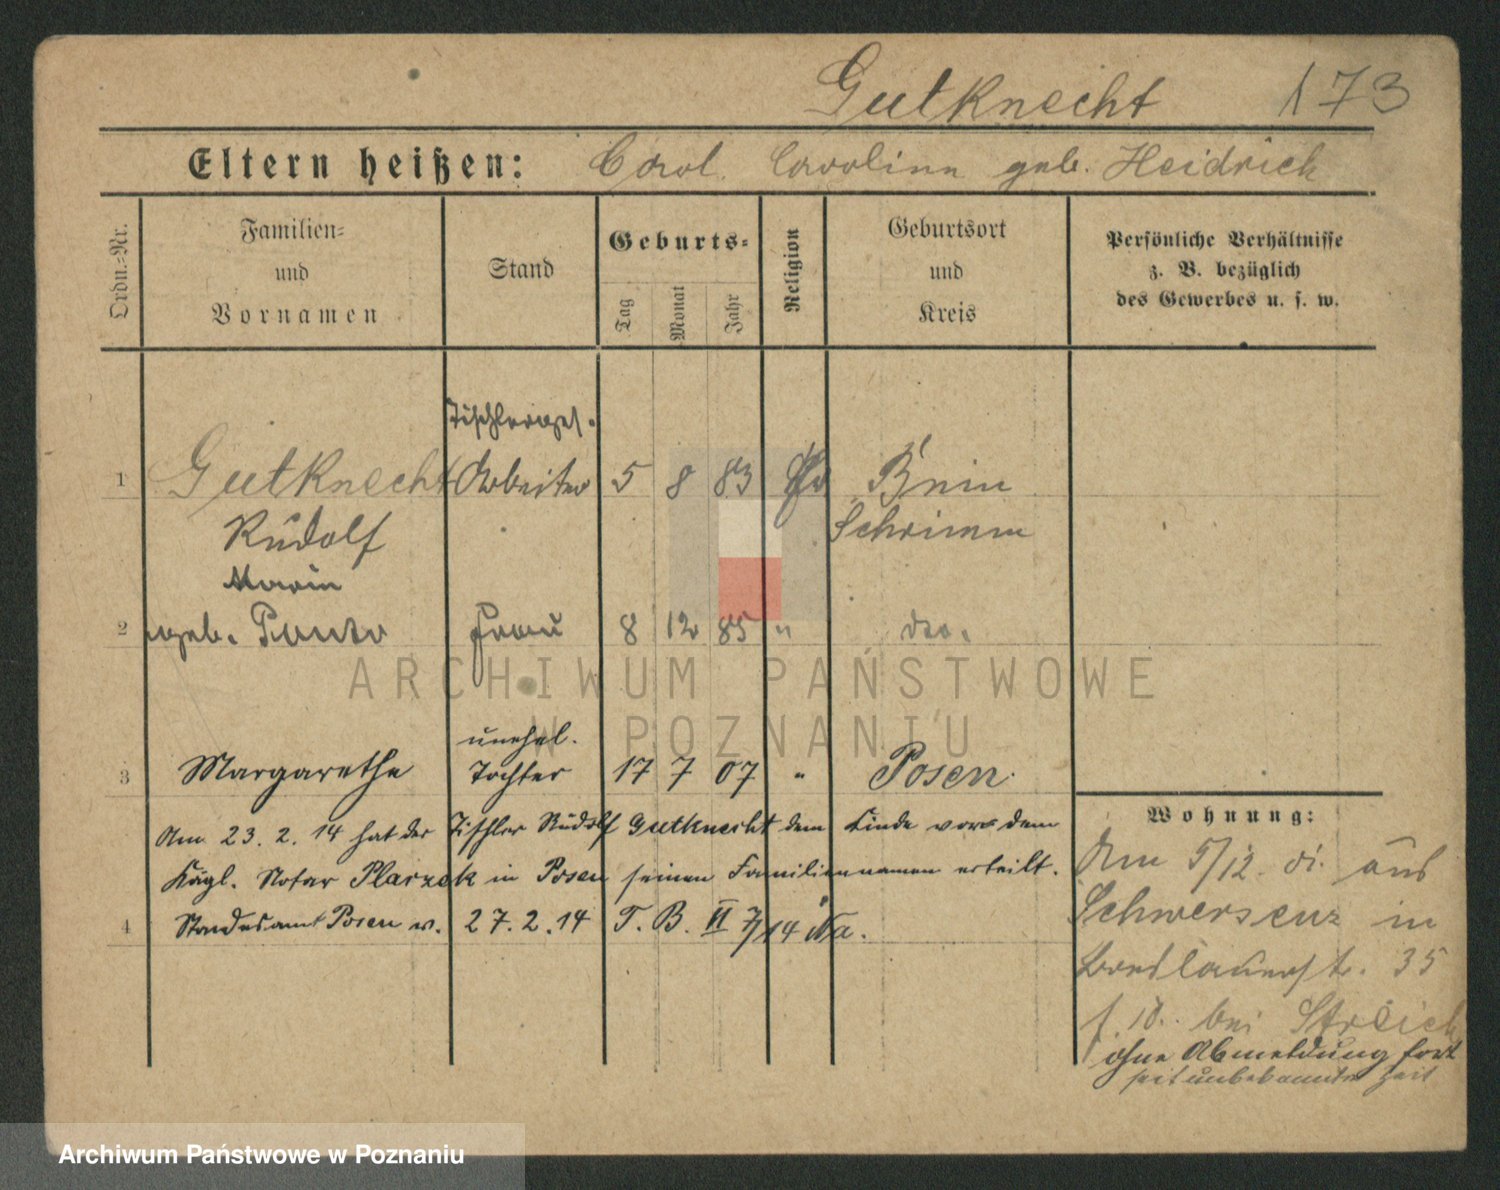 Gutknecht 173
Eltern heißen: Carl Caroline geb. Heidrich
Ordn.-Nr.
Familien-
und
Vornamen
Stand
Geburts-
Tag
Monat
Jahr
Religion
Geburtsort
und
Kreis
Persönliche Verhältnisse
z. B. bezüglich
des Gewerbes u. s. w.
Tischlerges.
1 Gutknecht Arbeiter 5 8 83 Ev Bnin
Rudolf Schrimm
Marie
2 geb. Frau 8 12 85 " dto.
unehel.
3 Margarethe Tochter 17 7 07 " Posen.
Am 23. 2. 14 hat der Tischler Rudolf Gutknecht dem Kinde vor dem
Kägl. Notar Plarzek in Posen seinen Familiennamen erteilt.
4 Standesamt Posen w. 27. 2. 14 T. B. II 7/14 Na.
Wohnung:
Am 5/12. 01. aus
Schwersenz in
Breslauerstr. 35
f. 10. bei Streich
ohne Abmeldung fort
seit unbekannter Zeit
ARCHIWUM PAŃSTWOWE
W POZNANIU
Archiwum Państwowe w Poznaniu